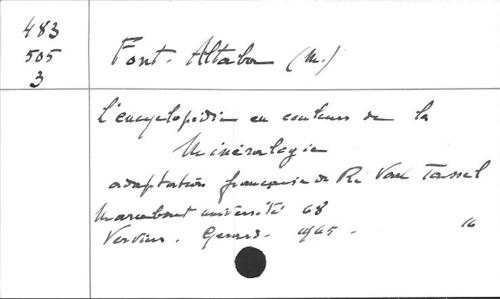 483
505
3
Font-Altaba (M.)
L'encyclopédie en couleurs de la
Minéralogie
adaptation française de R. Van Tassel
Marabout université 68
Verviers. Gerard. 1965 - 16